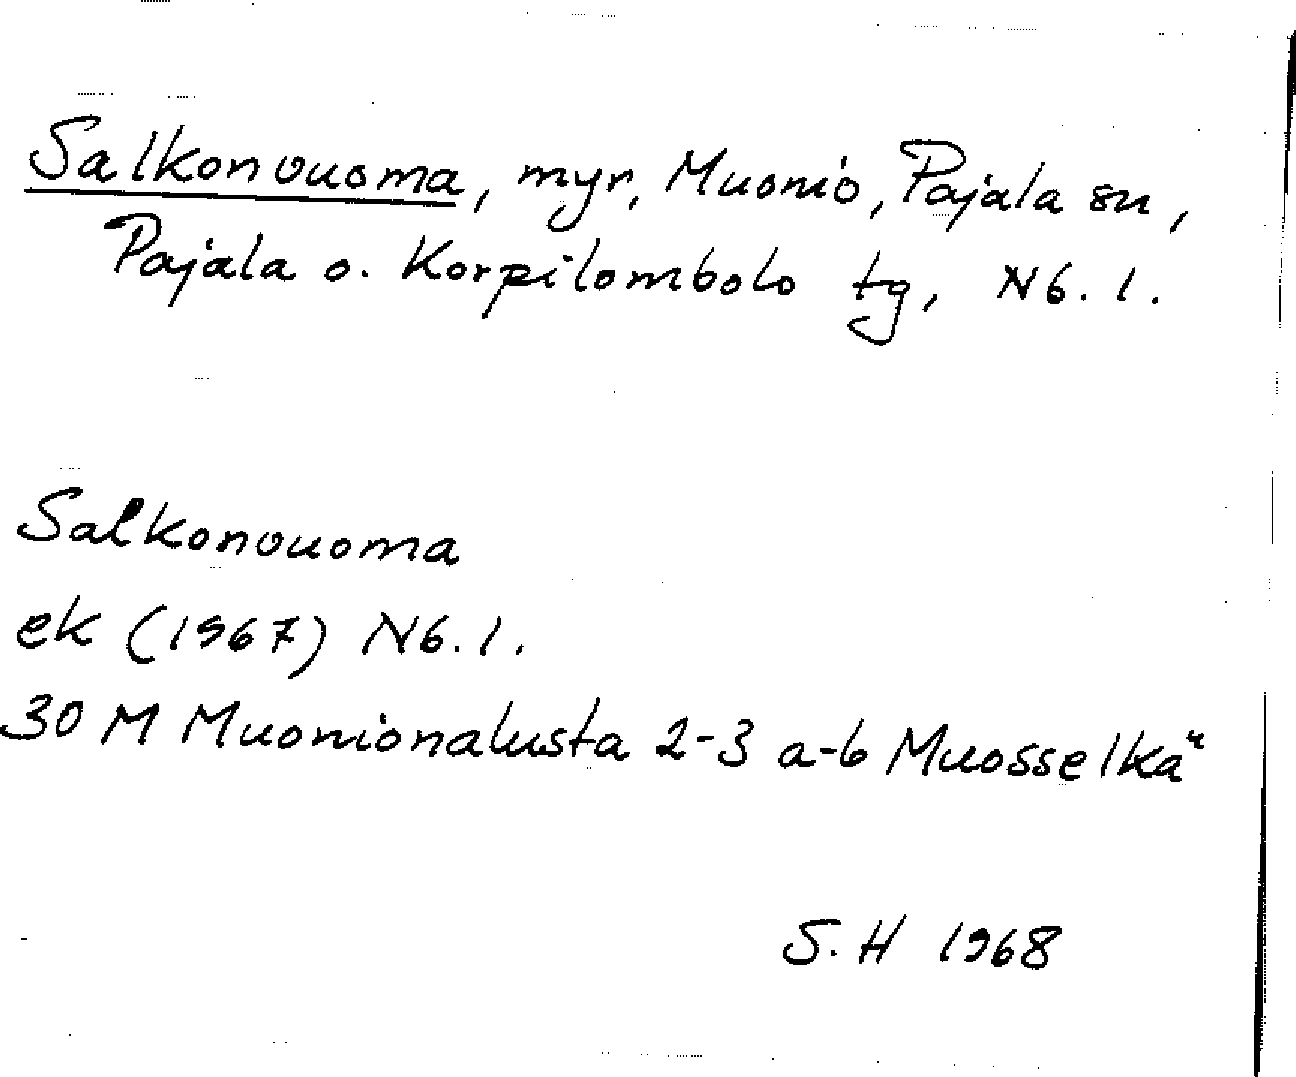 Salkonvuoma, myr, Muonio, Pajala sn,
Pajala o. Korpilombolo tg, Nb. l.
Salkonvuoma
ek (1967) Nb. l.
30 M Muonionalusta 2-3 a-b Muosselkä
S. H 1968